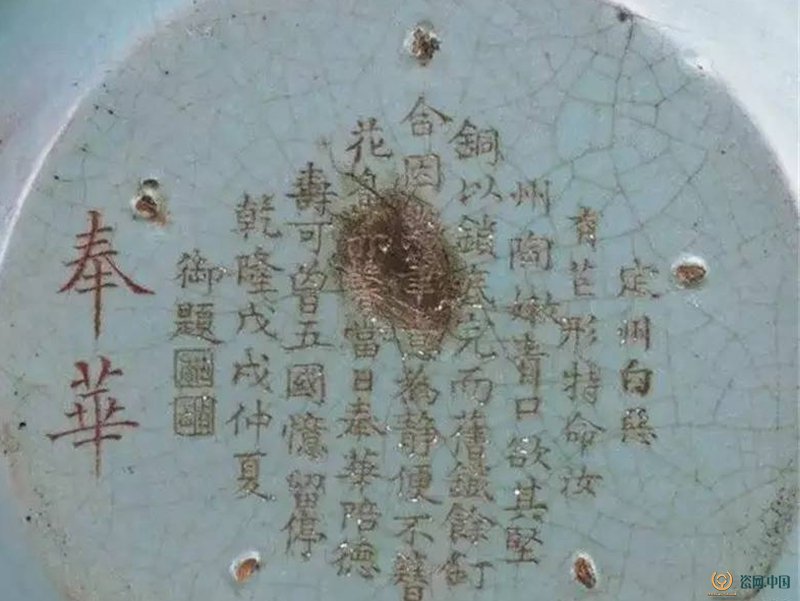 定州白惡
有芒形特命汝
州陶嫩青口欲其堅
銅以鎖底完而舊鐵餘釘
合因為靜便不簪
花當日奉華陪德
壽可曾五國憶留停
乾隆戊戌仲夏
御題
奉華
瓷网.中国